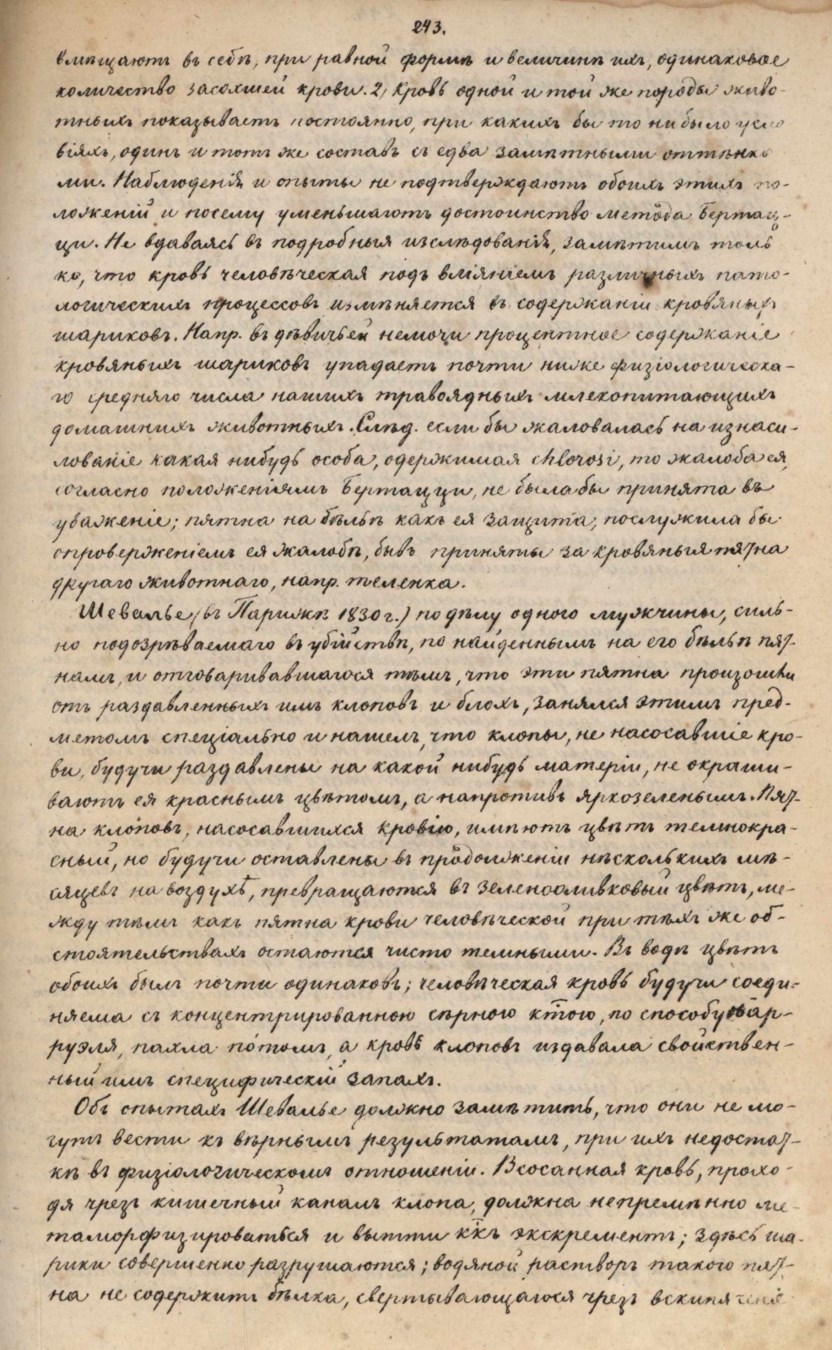 243.
вмѣщаютъ въ себѣ, при равной формѣ и величинѣ ихъ, одинаковое
количество засохшей крови. 2, Кровь одной и той же породы живо-
тныхъ показываетъ постоянно, при какихъ бы то ни было усло
віяхъ, одинъ и тотъ же составъ съ едва замѣтными оттѣнка
ми. Наблюденія и опыты не подтверждаютъ обоихъ этихъ по-
ложеній и посему уменьшаютъ достоинство метода Бертац-
ци. Не вдаваясь въ подробныя изслѣдованія, замѣтимъ толь
ко, что кровь человѣческая подъ вліяніемъ различныхъ пато-
логическихъ процессовъ измѣняется въ содержаніи кровяныхъ
шариковъ. Напр. въ дѣвичьей немочи процентное содержаніе
кровяныхъ шариковъ упадаетъ почти ниже физіологическа-
го средняго числа нашихъ травоядныхъ млекопитающихъ
домашнихъ животныхъ. Слѣд. если бы жаловалась на изнаси-
лованіе какая нибудь особа, одержимая chlorosi, то жалоба ея,
согласно положеніямъ Бертацци, не была бы принята въ
уваженіе; пятна на бѣльѣ какъ ея защита, послужила бы
опроверженіемъ ея жалобѣ, бывъ приняты за кровяныя пятна
другаго животнаго, напр. теленка.
Шевалье (въ Парижѣ 1830 г.) по дѣлу одного мужчины, силь-
но подозрѣваемаго въ убійствѣ, по найденнымъ на его бѣльѣ пят-
намъ, и отговаривавшагося тѣмъ, что эти пятна произошли
отъ раздавленныхъ имъ клоповъ и блохъ, занялся этимъ пред-
метомъ спеціально и нашелъ, что клопы, не насосавшіе кро-
ви, будучи раздавлены на какой нибудь матеріи, не окраши-
ваютъ ея краснымъ цвѣтомъ, а напротивъ яркозеленымъ. Пят-
на клоповъ, насосавшихся кровію, имѣютъ цвѣтъ темнокра-
сный, но будучи оставлены въ продолженіи нѣсколькихъ мѣ-
сяцевъ на воздухѣ, превращаются въ зеленооливковый цвѣтъ, ме-
жду тѣмъ какъ пятна крови человѣческой при тѣхъ же об-
стоятельствахъ остаются чисто темными. Въ водѣ цвѣтъ
обоихъ былъ почти одинаковъ; человѣческая кровь будучи соеди-
няема съ концентрированною сѣрною ктою, по способу Бар-
руэля, пахла пóтомъ, а кровь клоповъ издавала свойствен-
ный имъ специфическій запахъ.
Объ опытахъ Шевалье должно замѣтить, что они не мо-
гутъ вести къ вѣрнымъ результатамъ, при ихъ недостат-
кѣ въ физіологическомъ отношеніи. Всосанная кровь, прохо-
дя чрезъ кишечный каналъ клопа, должна непремѣнно ме-
таморфизироваться и вытти ккъ экскрементъ; здѣсь ша-
рики совершенно разрушаются; водяной растворъ такого пят-
на не содержитъ бѣлка, свертывающагося чрезъ вскипяченіе